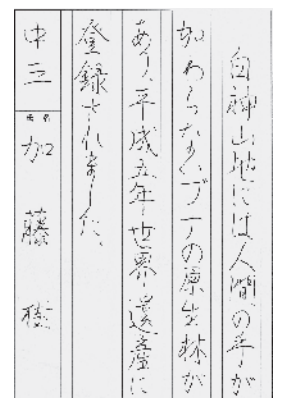 白神山地には人間の手が
加わらないブナの原生林が
あり、平成五年世界遺産に
登録されました。
中三 氏名 加藤樹